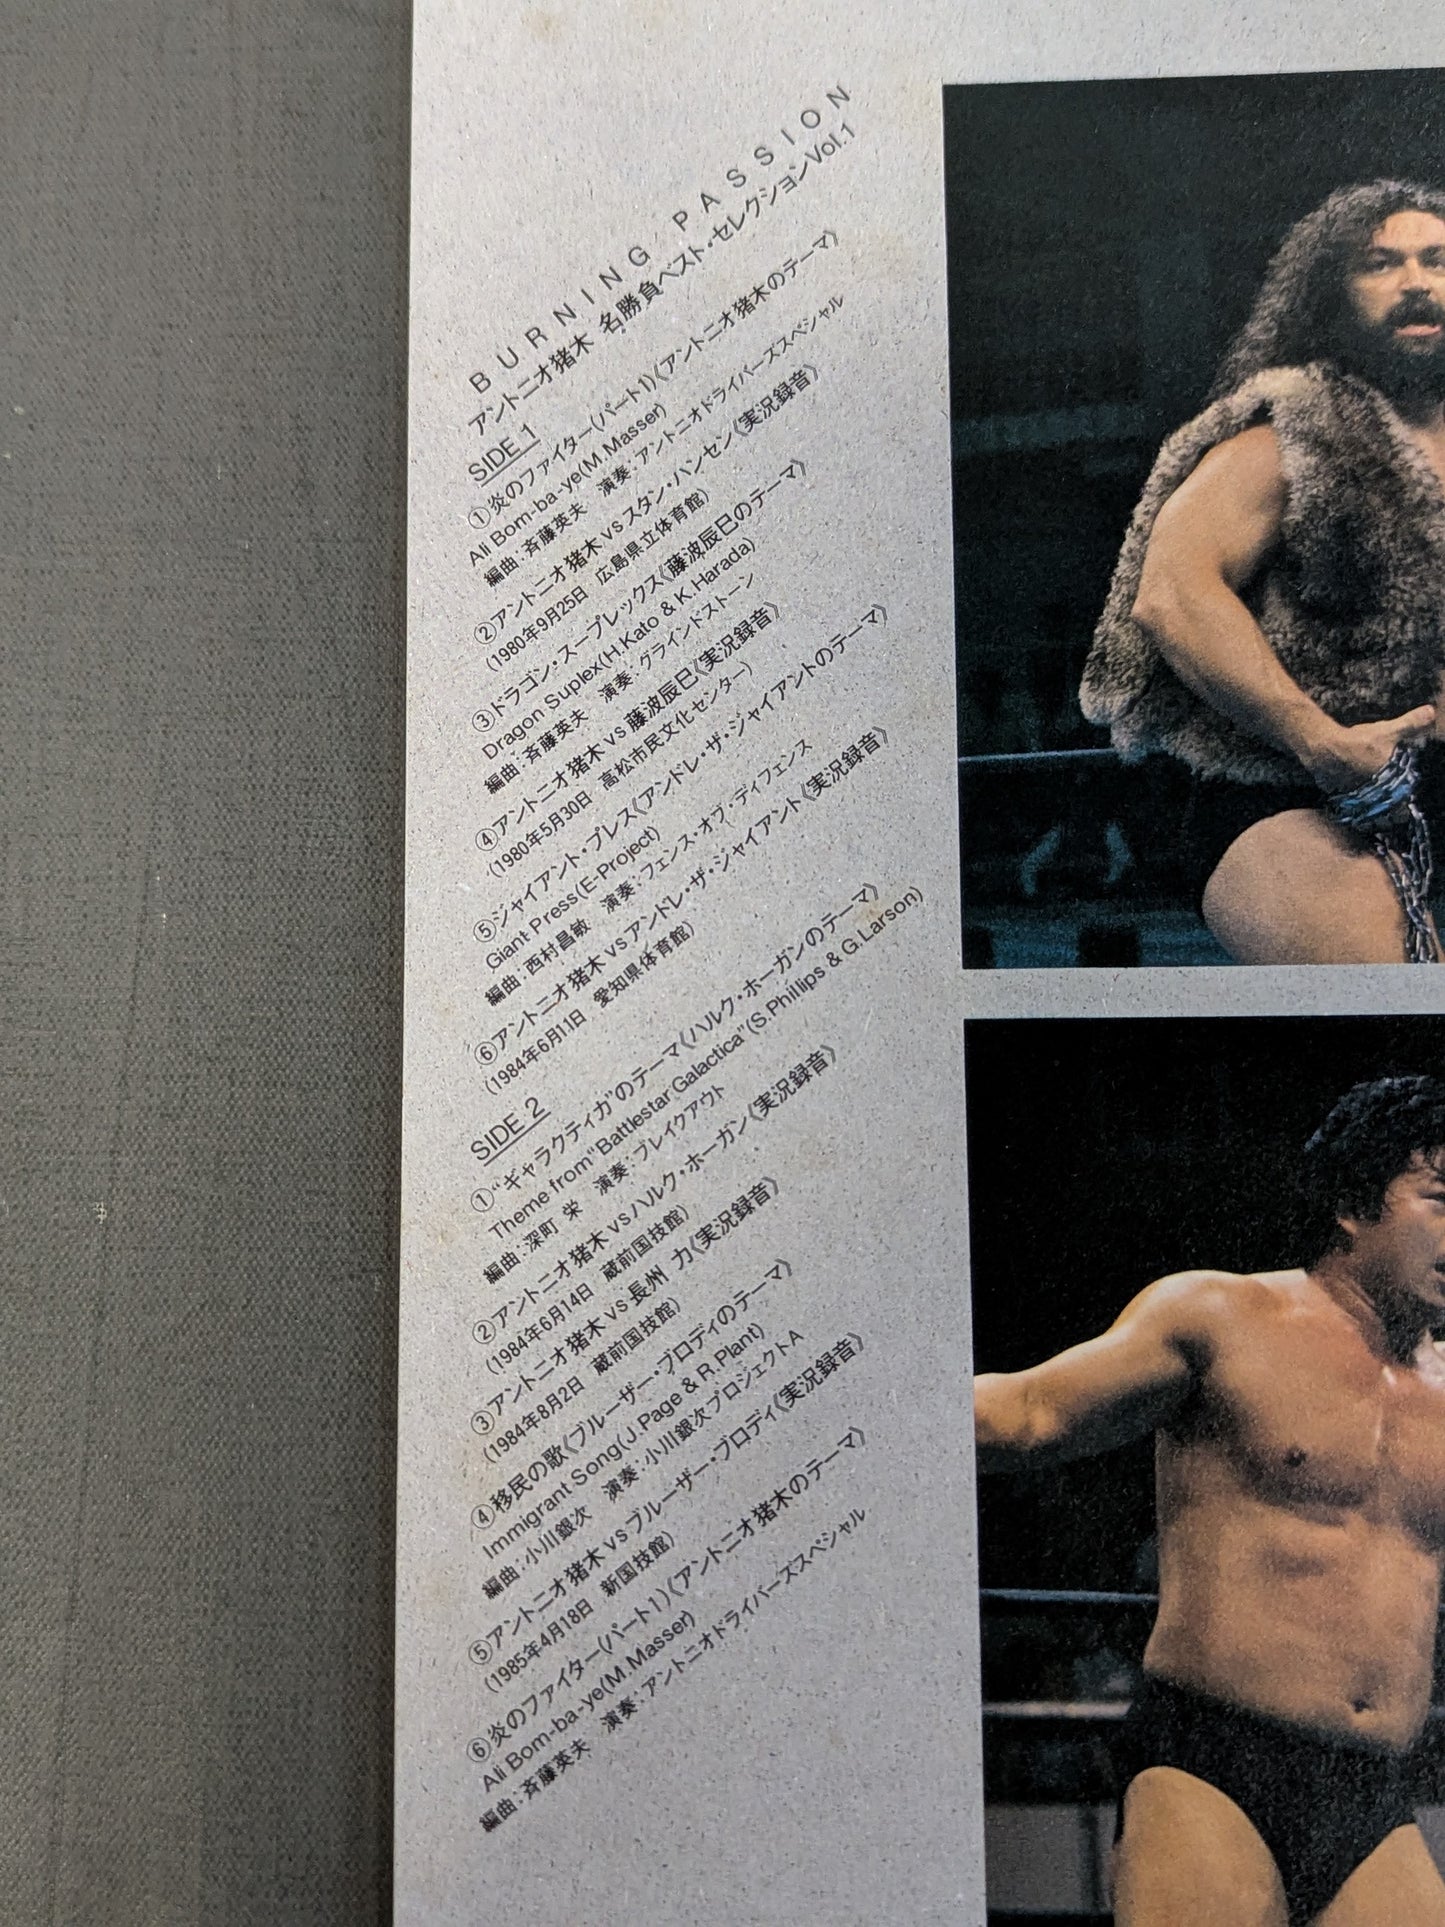 BURNING PASSION
アントニオ猪木 名勝負ベスト・セレクションVol.1
SIDE 1
①炎のファイター(パート1)《アントニオ猪木のテーマ》
Ali Bom-ba-ye(M.Masser)
編曲:斉藤英夫 演奏:アントニオドライバーズスペシャル
②アントニオ猪木 vs スタン・ハンセン《実況録音》
(1980年9月25日 広島県立体育館)
③ドラゴン・スープレックス《藤波辰巳のテーマ》
Dragon Suplex(H.Kato & K.Harada)
編曲:斉藤英夫 演奏:グラインドストーン
④アントニオ猪木 vs 藤波辰巳《実況録音》
(1980年5月30日 高松市民文化センター)
⑤ジャイアント・プレス《アンドレ・ザ・ジャイアントのテーマ》
Giant Press(E-Project)
編曲:西村昌敏 演奏:フェンス・オブ・ディフェンス
⑥アントニオ猪木 vs アンドレ・ザ・ジャイアント《実況録音》
(1984年6月11日 愛知県体育館)
SIDE 2
①“ギャラクティカ”のテーマ《ハルク・ホーガンのテーマ》
Theme from“Battlestar Galactica”(S.Phillips & G.Larson)
編曲:深町 栄 演奏:ブレイクアウト
②アントニオ猪木 vs ハルク・ホーガン《実況録音》
(1984年6月14日 蔵前国技館)
③アントニオ猪木 vs 長州 力《実況録音》
(1984年8月2日 蔵前国技館)
④移民の歌《ブルーザー・ブロディのテーマ》
Immigrant Song(J.Page & R.Plant)
編曲:小川銀次 演奏:小川銀次プロジェクトA
⑤アントニオ猪木 vs ブルーザー・ブロディ《実況録音》
(1985年4月18日 新国技館)
⑥炎のファイター(パート1)《アントニオ猪木のテーマ》
Ali Bom-ba-ye(M.Masser)
編曲:斉藤英夫 演奏:アントニオドライバーズスペシャル